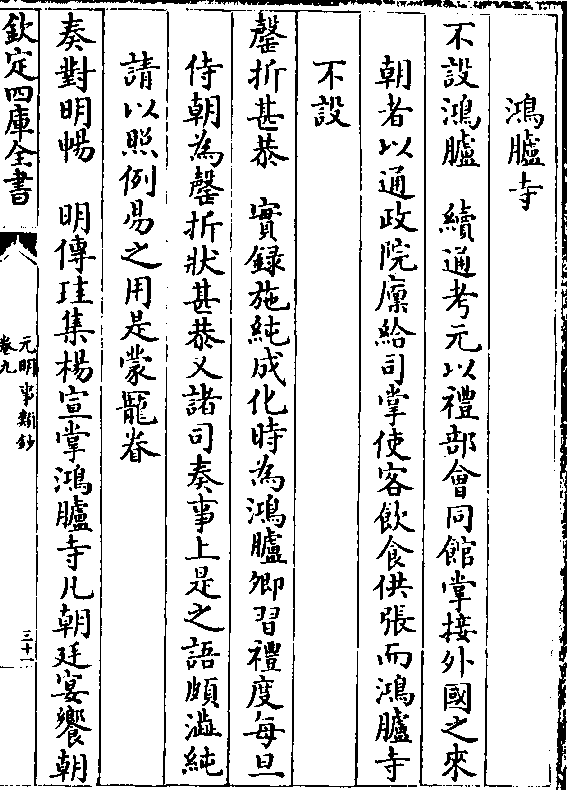 鴻臚寺
不設鴻臚　續通考元以禮部會同館掌接外國之來
朝者以通政院廩給司掌使客飲食供張而鴻臚寺
不設
罄折甚恭　實録施純成化時為鴻臚卿習禮度每旦
侍朝為罄折狀甚恭又諸司奏事上是之語頗澁純
請以照例易之用是蒙寵眷
奏對明暢　明傅珪集楊宣掌鴻臚寺凡朝廷宴饗朝
欽定四庫全書
元明事類鈔
卷九
三十一